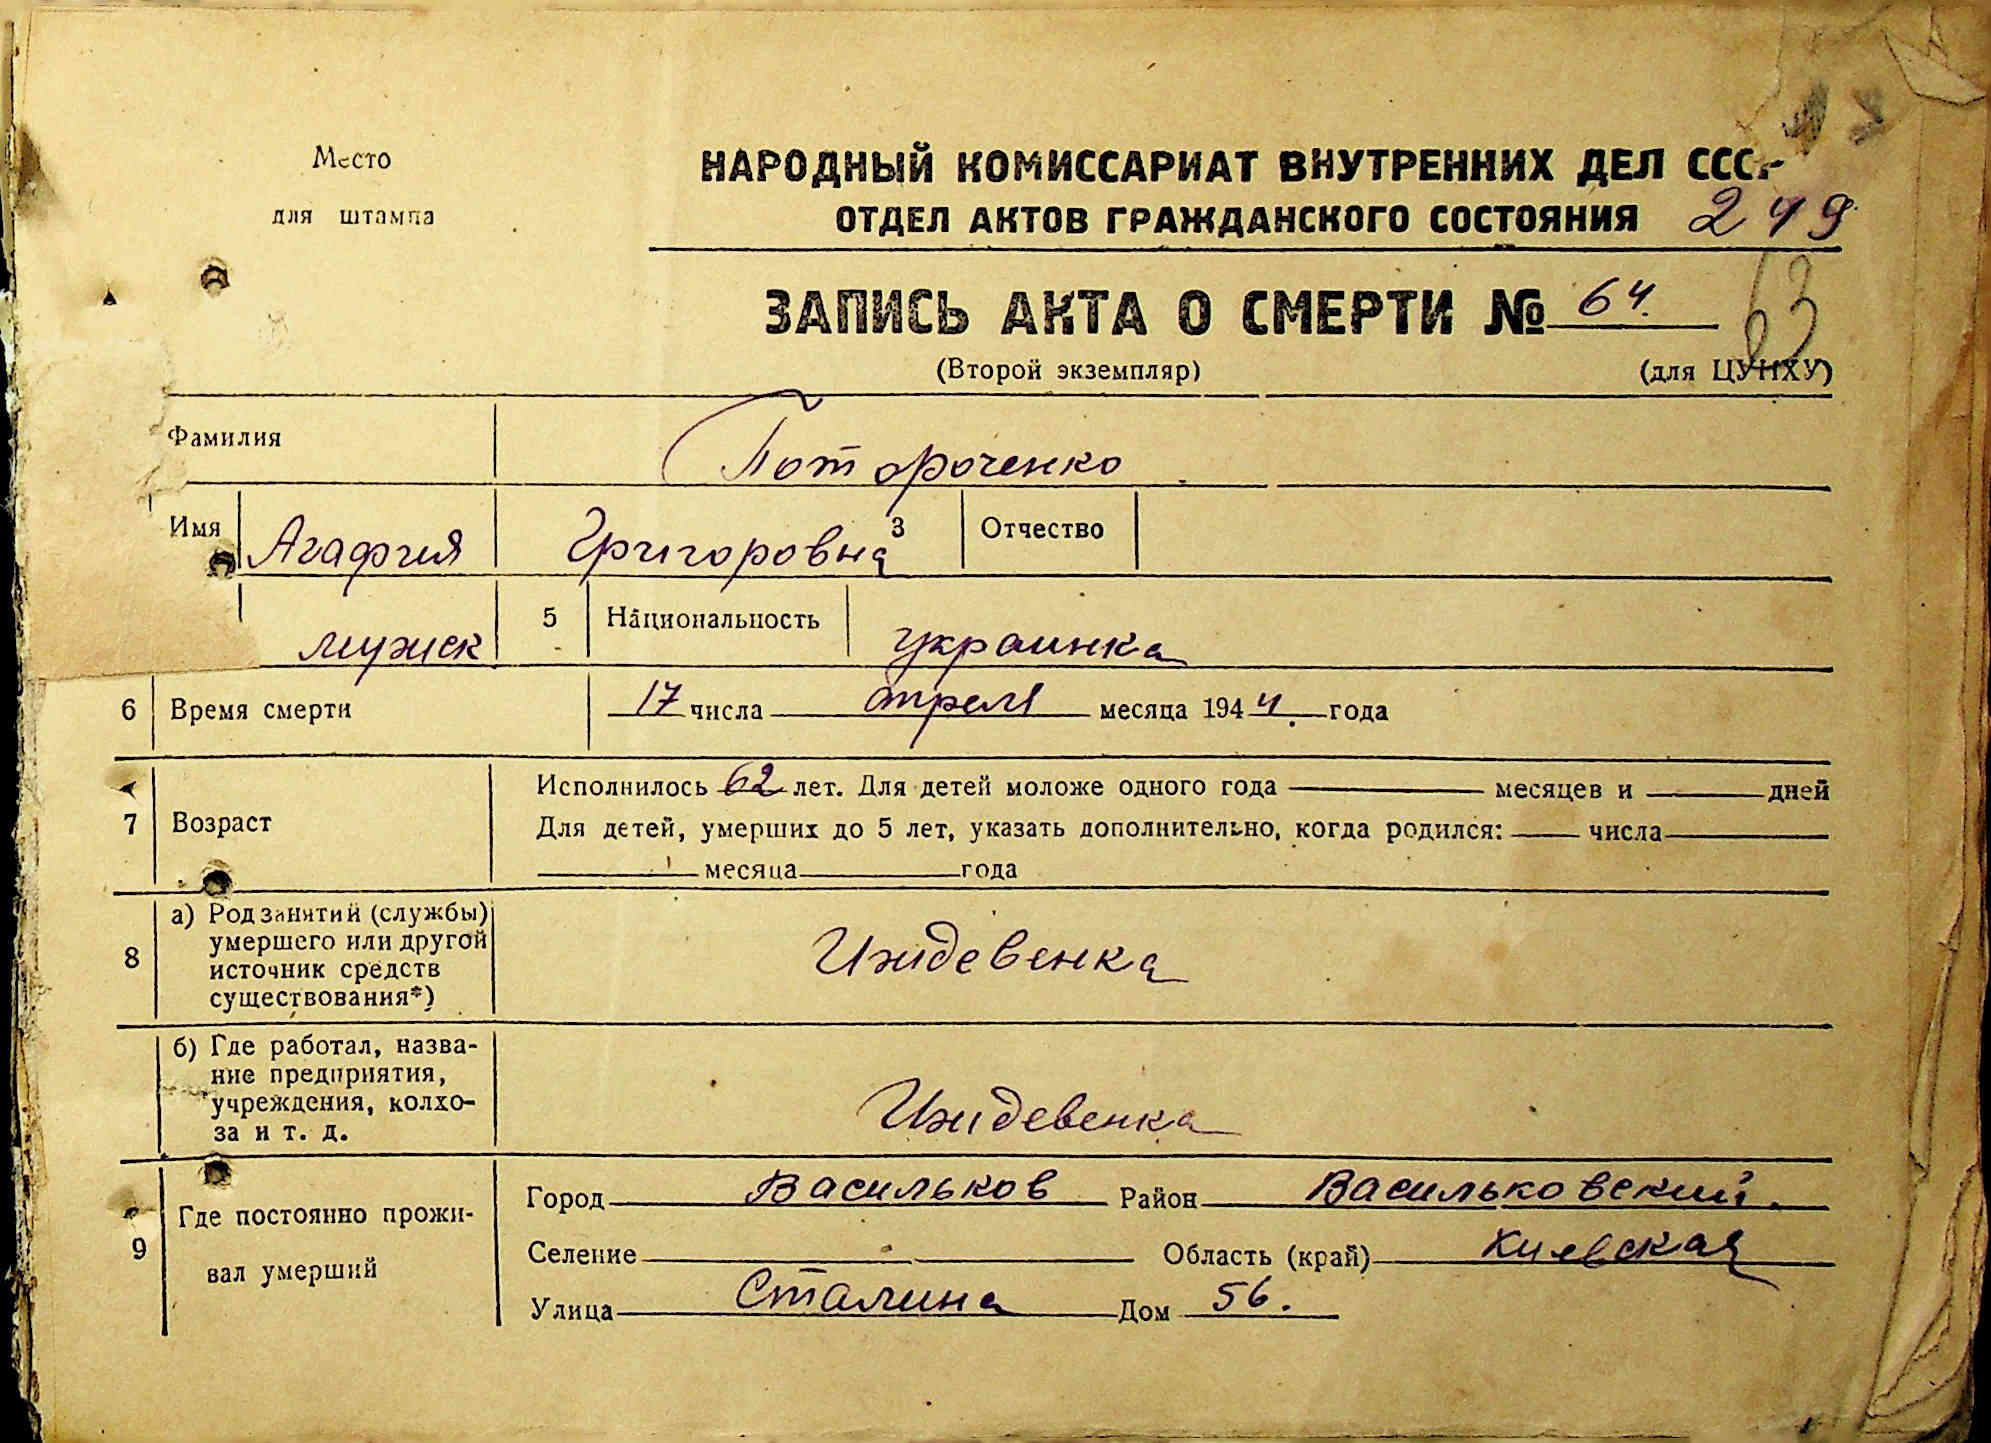 Место
для штампа
НАРОДНЫЙ КОМИССАРИАТ ВНУТРЕННИХ ДЕЛ СССР
ОТДЕЛ АКТОВ ГРАЖДАНСКОГО СОСТОЯНИЯ 249
ЗАПИСЬ АКТА О СМЕРТИ № 64. 63
(Второй экземпляр) (для ЦУНХУ)
Фамилия Потороченко
Имя Агафия Григоровна 3 Отчество
мужск 5 Национальность украинка
6 Время смерти 17 числа апреля месяца 1944 года
Исполнилось 62 лет. Для детей моложе одного года месяцев и дней
7 Возраст Для детей, умерших до 5 лет, указать дополнительно, когда родился: числа
месяца года
8 а) Род занятий (службы) умершего или другой источник средств существования*) Иждевенка
б) Где работал, название предприятия, учреждения, колхоза и т. д. Иждевенка
9 Где постоянно проживал умерший
Город Васильков Район Васильковский.
Селение Область (край) Киевская
Улица Сталина Дом 56.